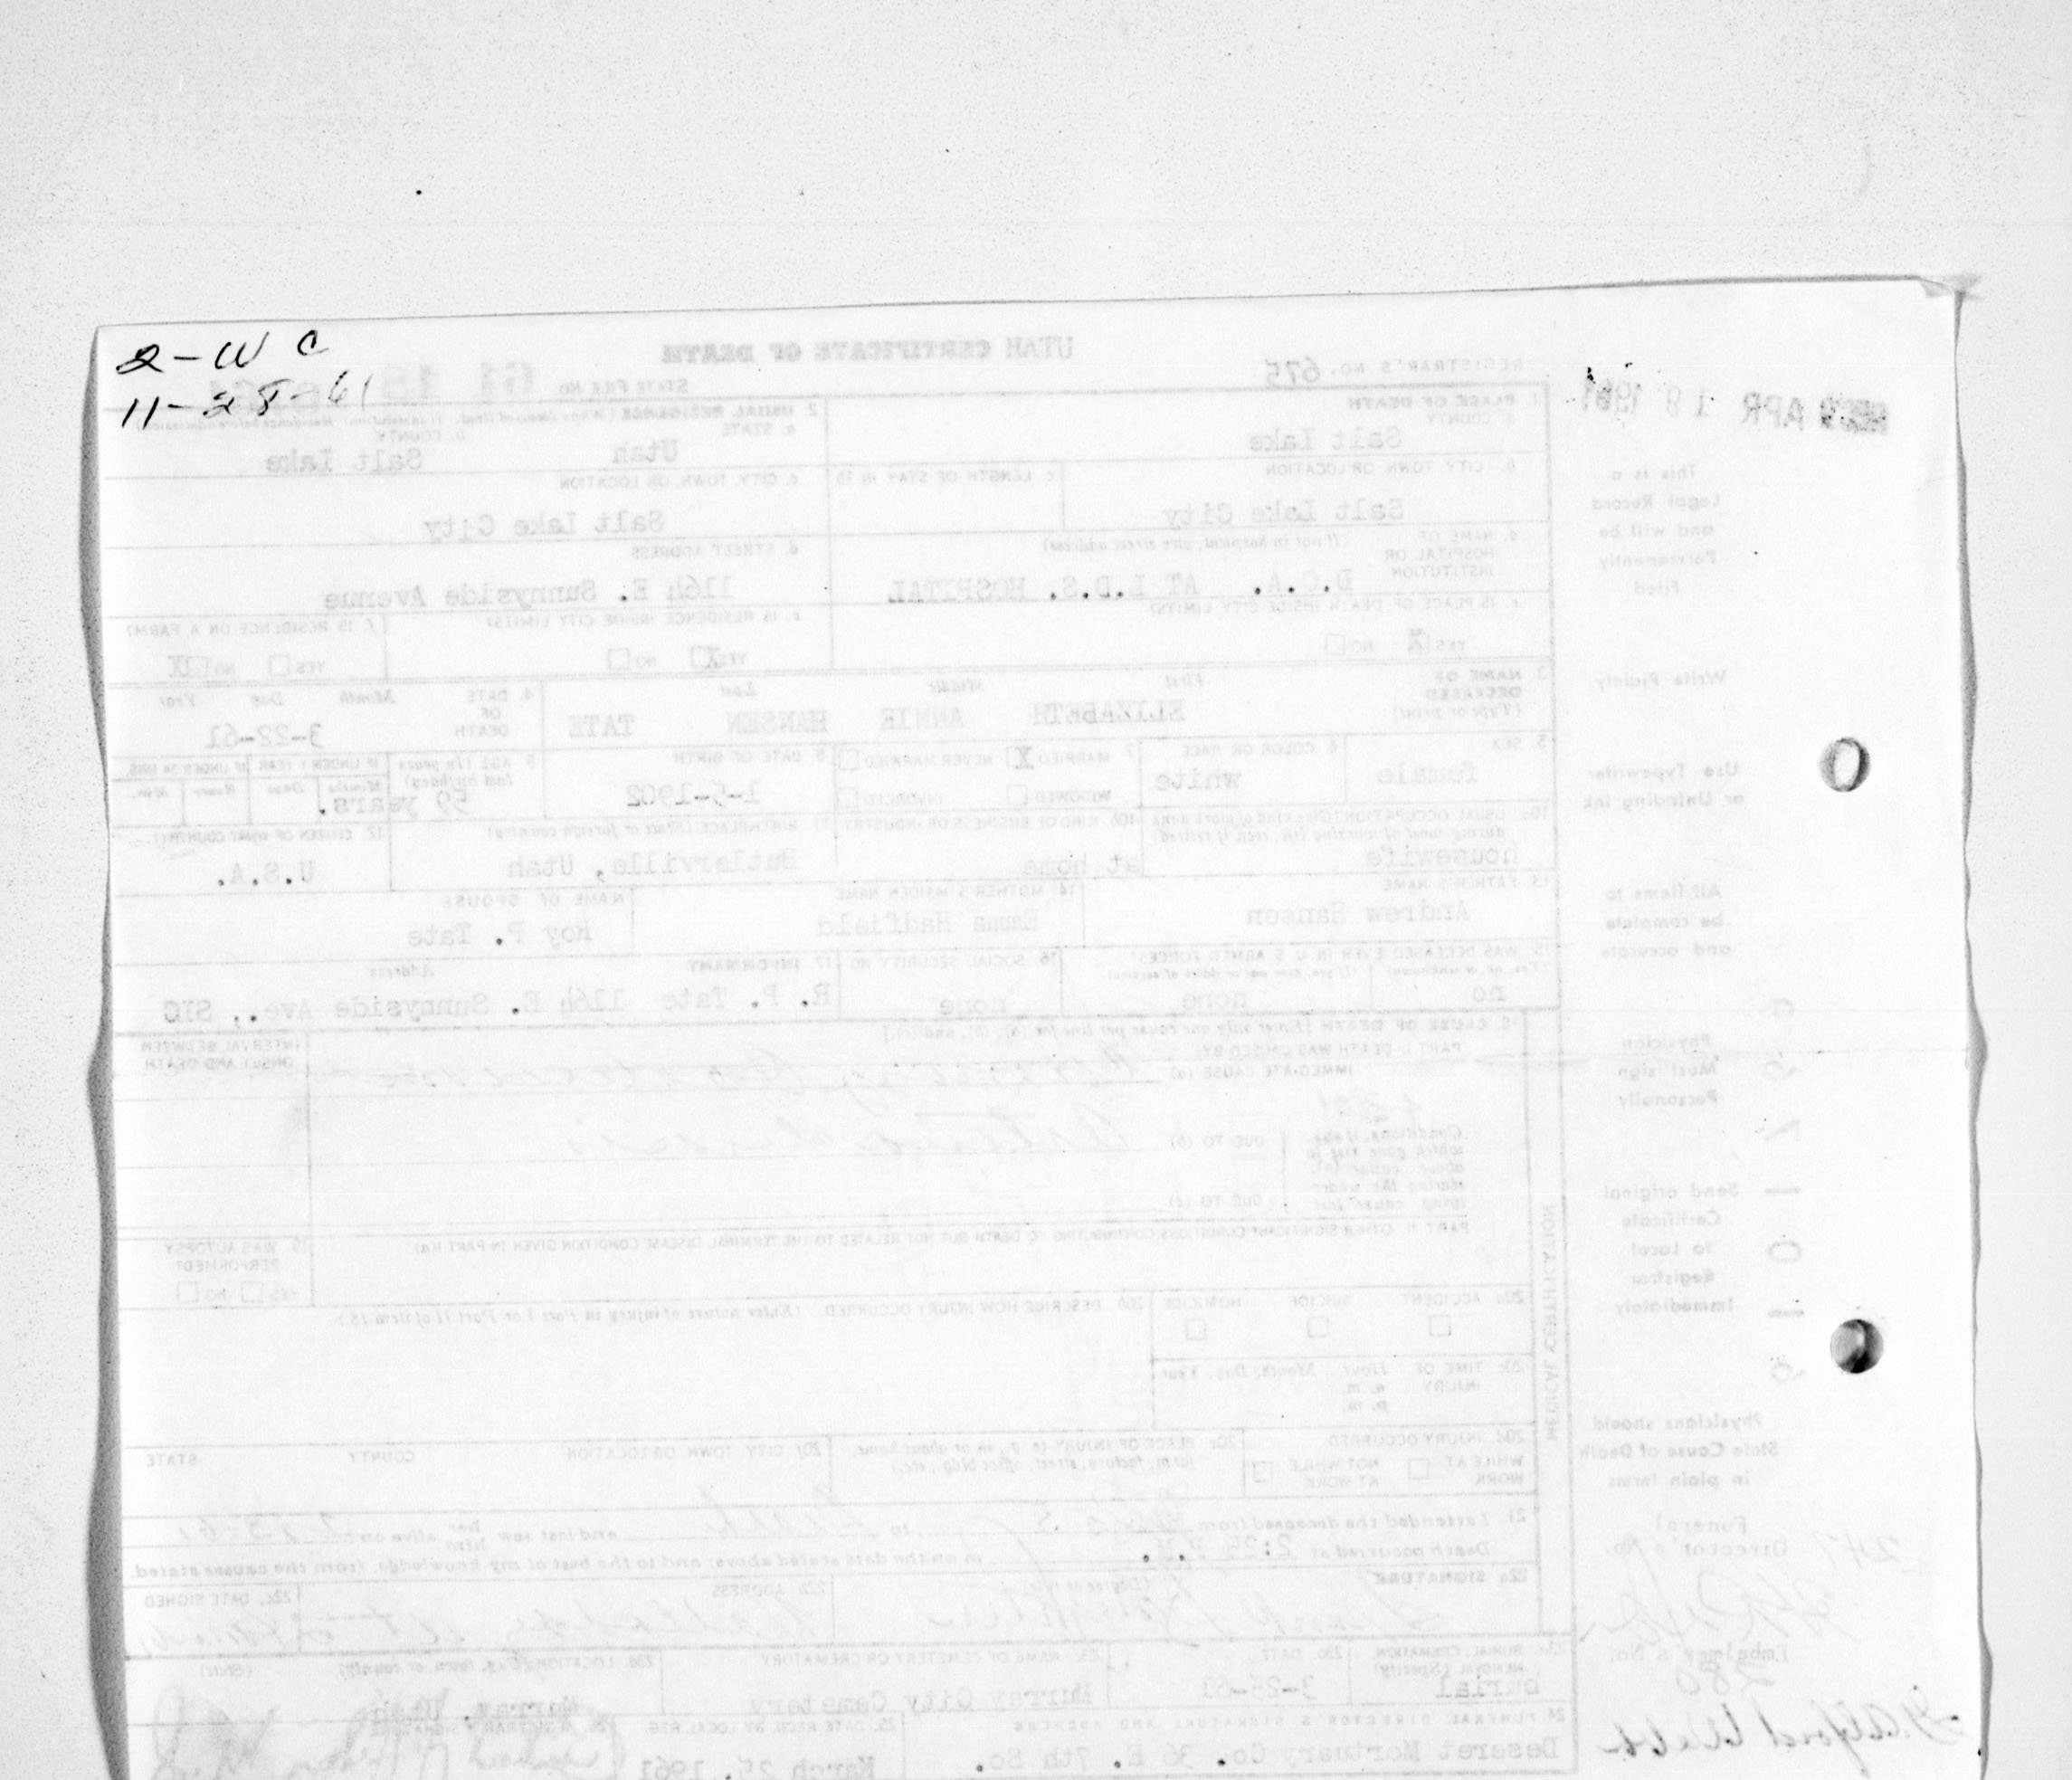 2-W C
11-28-61
UTAH CERTIFICATE OF DEATH
REGISTRAR'S NO. 675
STATE FILE NO. 61 18
REC'D APR 18 1961
1. PLACE OF DEATH
a. COUNTY
Salt Lake
2. USUAL RESIDENCE (Where deceased lived. If institution: Residence before admission)
a. STATE
Utah
b. COUNTY
Salt Lake
b. CITY, TOWN, OR LOCATION
Salt Lake City
c. LENGTH OF STAY IN 1b
c. CITY, TOWN, OR LOCATION
Salt Lake City
d. NAME OF HOSPITAL OR INSTITUTION
(If not in hospital, give street address)
D.O.A. AT L.D.S. HOSPITAL
d. STREET ADDRESS
1164 E. Sunnyside Avenue
e. IS PLACE OF DEATH INSIDE CITY LIMITS?
YES X NO
e. IS RESIDENCE INSIDE CITY LIMITS?
YES X NO
f. IS RESIDENCE ON A FARM?
YES NO X
3. NAME OF DECEASED (Type or print)
First Middle Last
ELIZABETH ANNIE HANSEN TATE
4. DATE OF DEATH
Month Day Year
3-22-61
5. SEX
female
6. COLOR OR RACE
white
7. MARRIED X NEVER MARRIED
WIDOWED DIVORCED
8. DATE OF BIRTH
1-5-1902
9. AGE (In years last birthday)
59 years.
IF UNDER 1 YEAR
Months Days
IF UNDER 24 HRS.
Hours Min.
10a. USUAL OCCUPATION (Give kind of work done during most of working life, even if retired)
housewife
10b. KIND OF BUSINESS OR INDUSTRY
at home
11. BIRTHPLACE (State or foreign country)
Butlerville, Utah
12. CITIZEN OF WHAT COUNTRY?
U.S.A.
13. FATHER'S NAME
Andrew Hansen
14. MOTHER'S MAIDEN NAME
Emma Hadfield
NAME OF SPOUSE
Roy P. Tate
15. WAS DECEASED EVER IN U. S. ARMED FORCES?
(Yes, no, or unknown) (If yes, give war or dates of service)
no none
16. SOCIAL SECURITY NO.
none
17. INFORMANT Address
R. P. Tate 1164 E. Sunnyside Ave., SLC
18. CAUSE OF DEATH [Enter only one cause per line for (a), (b), and (c).]
PART I. DEATH WAS CAUSED BY:
IMMEDIATE CAUSE (a)
INTERVAL BETWEEN ONSET AND DEATH
Conditions, if any, which gave rise to above cause (a), stating the underlying cause last.
DUE TO (b)
DUE TO (c)
PART II. OTHER SIGNIFICANT CONDITIONS CONTRIBUTING TO DEATH BUT NOT RELATED TO THE TERMINAL DISEASE CONDITION GIVEN IN PART I(a)
19. WAS AUTOPSY PERFORMED?
YES NO
20a. ACCIDENT SUICIDE HOMICIDE
20b. DESCRIBE HOW INJURY OCCURRED. (Enter nature of injury in Part I or Part II of item 18.)
20c. TIME OF INJURY
Hour Month, Day, Year
a. m.
p. m.
20d. INJURY OCCURRED
WHILE AT WORK NOT WHILE AT WORK
20e. PLACE OF INJURY (e. g., in or about home, farm, factory, street, office bldg., etc.)
20f. CITY, TOWN, OR LOCATION COUNTY STATE
21. I attended the deceased from to and last saw her him alive on
Death occurred at 2:25 P.M. m on the date stated above; and to the best of my knowledge, from the causes stated.
22a. SIGNATURE (Degree or title)
22b. ADDRESS
22c. DATE SIGNED
23a. BURIAL, CREMATION, REMOVAL (Specify)
burial
23b. DATE
3-25-61
23c. NAME OF CEMETERY OR CREMATORY
Murray City Cemetery
23d. LOCATION (City, town, or county) (State)
Murray, Utah
24. FUNERAL DIRECTOR'S SIGNATURE AND ADDRESS
Deseret Mortuary Co. 36 E. 7th So.
25. DATE RECD. BY LOCAL REG.
March 25, 1961
26. REGISTRAR'S SIGNATURE
MEDICAL CERTIFICATION
This is a
Legal Record
and will be
Permanently
Filed
Write Plainly
Use Typewriter
or Unfading Ink
All items to
be complete
and accurate
Physician
Must sign
Personally
Send original
Certificate
to Local
Registrar
Immediately
Physicians should
State Cause of Death
in plain terms
Funeral
Director's No.
247
Embalmer's No.
280